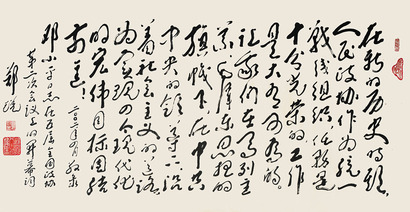 在新的历史时期
人民政协作为统一
战线组织任务是
十分光荣的工作
是大有可为的
让我们在马列主
义毛泽东思想的
旗帜下在中共
中央的领导下沿
着社会主义的道路
为实现四个现代化
的宏伟目标团结
前进
敬录
邓小平同志在五届全国政协
第二次会议上的开幕词